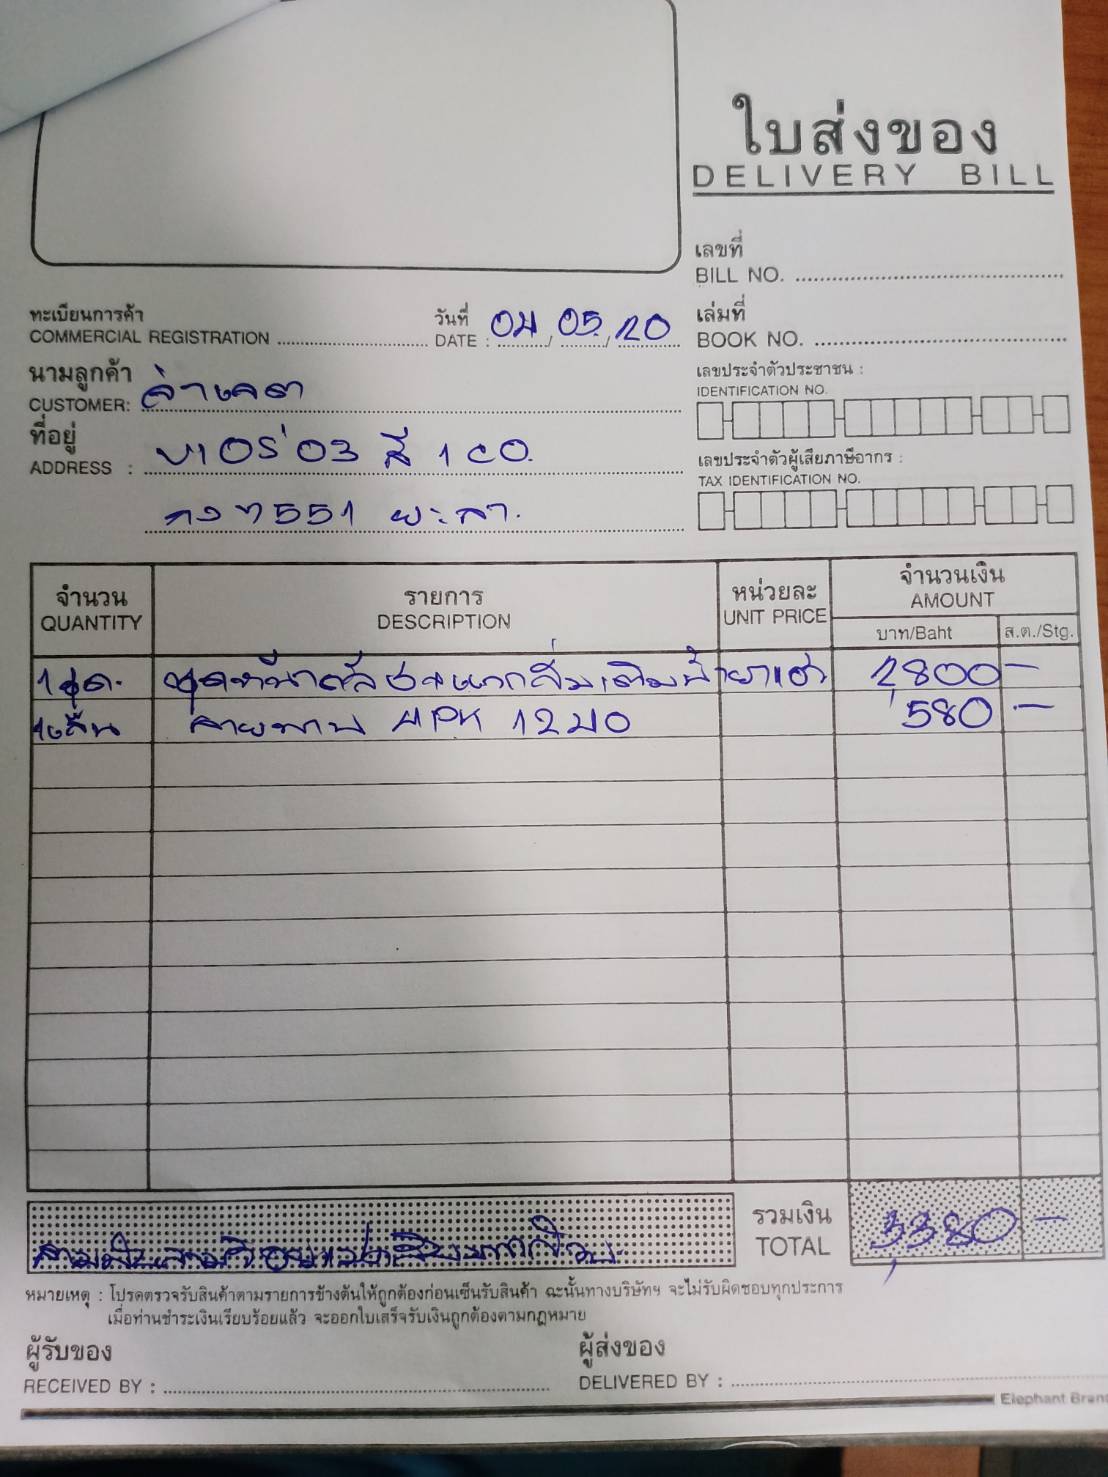 ใบส่งของ
DELIVERY BILL
เลขที่
BILL NO.
ทะเบียนการค้า
COMMERCIAL REGISTRATION
วันที่
DATE : 04/05/20
เล่มที่
BOOK NO.
นามลูกค้า
CUSTOMER:
เลขประจำตัวประชาชน :
IDENTIFICATION NO.
ที่อยู่
ADDRESS :
เลขประจำตัวผู้เสียภาษีอากร :
TAX IDENTIFICATION NO.
551 ยะลา.
จำนวน รายการ หน่วยละ จำนวนเงิน
QUANTITY DESCRIPTION UNIT PRICE AMOUNT
บาท/Baht ส.ต./Stg.
1ชุด. 2800 -
1เส้น สายพาน 580 -
รวมเงิน
TOTAL 3,380 -
สามพันสามร้อยแปดสิบบาทถ้วน
หมายเหตุ : โปรดตรวจรับสินค้าตามรายการข้างต้นให้ถูกต้องก่อนเซ็นรับสินค้า ฉะนั้นทางบริษัทฯ จะไม่รับผิดชอบทุกประการ
เมื่อท่านชำระเงินเรียบร้อยแล้ว จะออกใบเสร็จรับเงินถูกต้องตามกฎหมาย
ผู้รับของ ผู้ส่งของ
RECEIVED BY : DELIVERED BY :
Elephant Brand